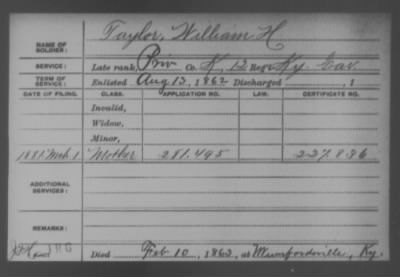 NAME OF SOLDIER: Taylor, William H
SERVICE: Late rank, Priv Co. K, 12 Reg't Ky Cav
TERM OF SERVICE: Enlisted Aug 13, 1862 Discharged , 1
DATE OF FILING. CLASS. APPLICATION NO. LAW. CERTIFICATE NO.
Invalid,
Widow,
Minor,
1881 Mch 1 Mother 281.495 227.836
ADDITIONAL SERVICES:
REMARKS:
Died Feb 10, 1863, at Munfordville, Ky.